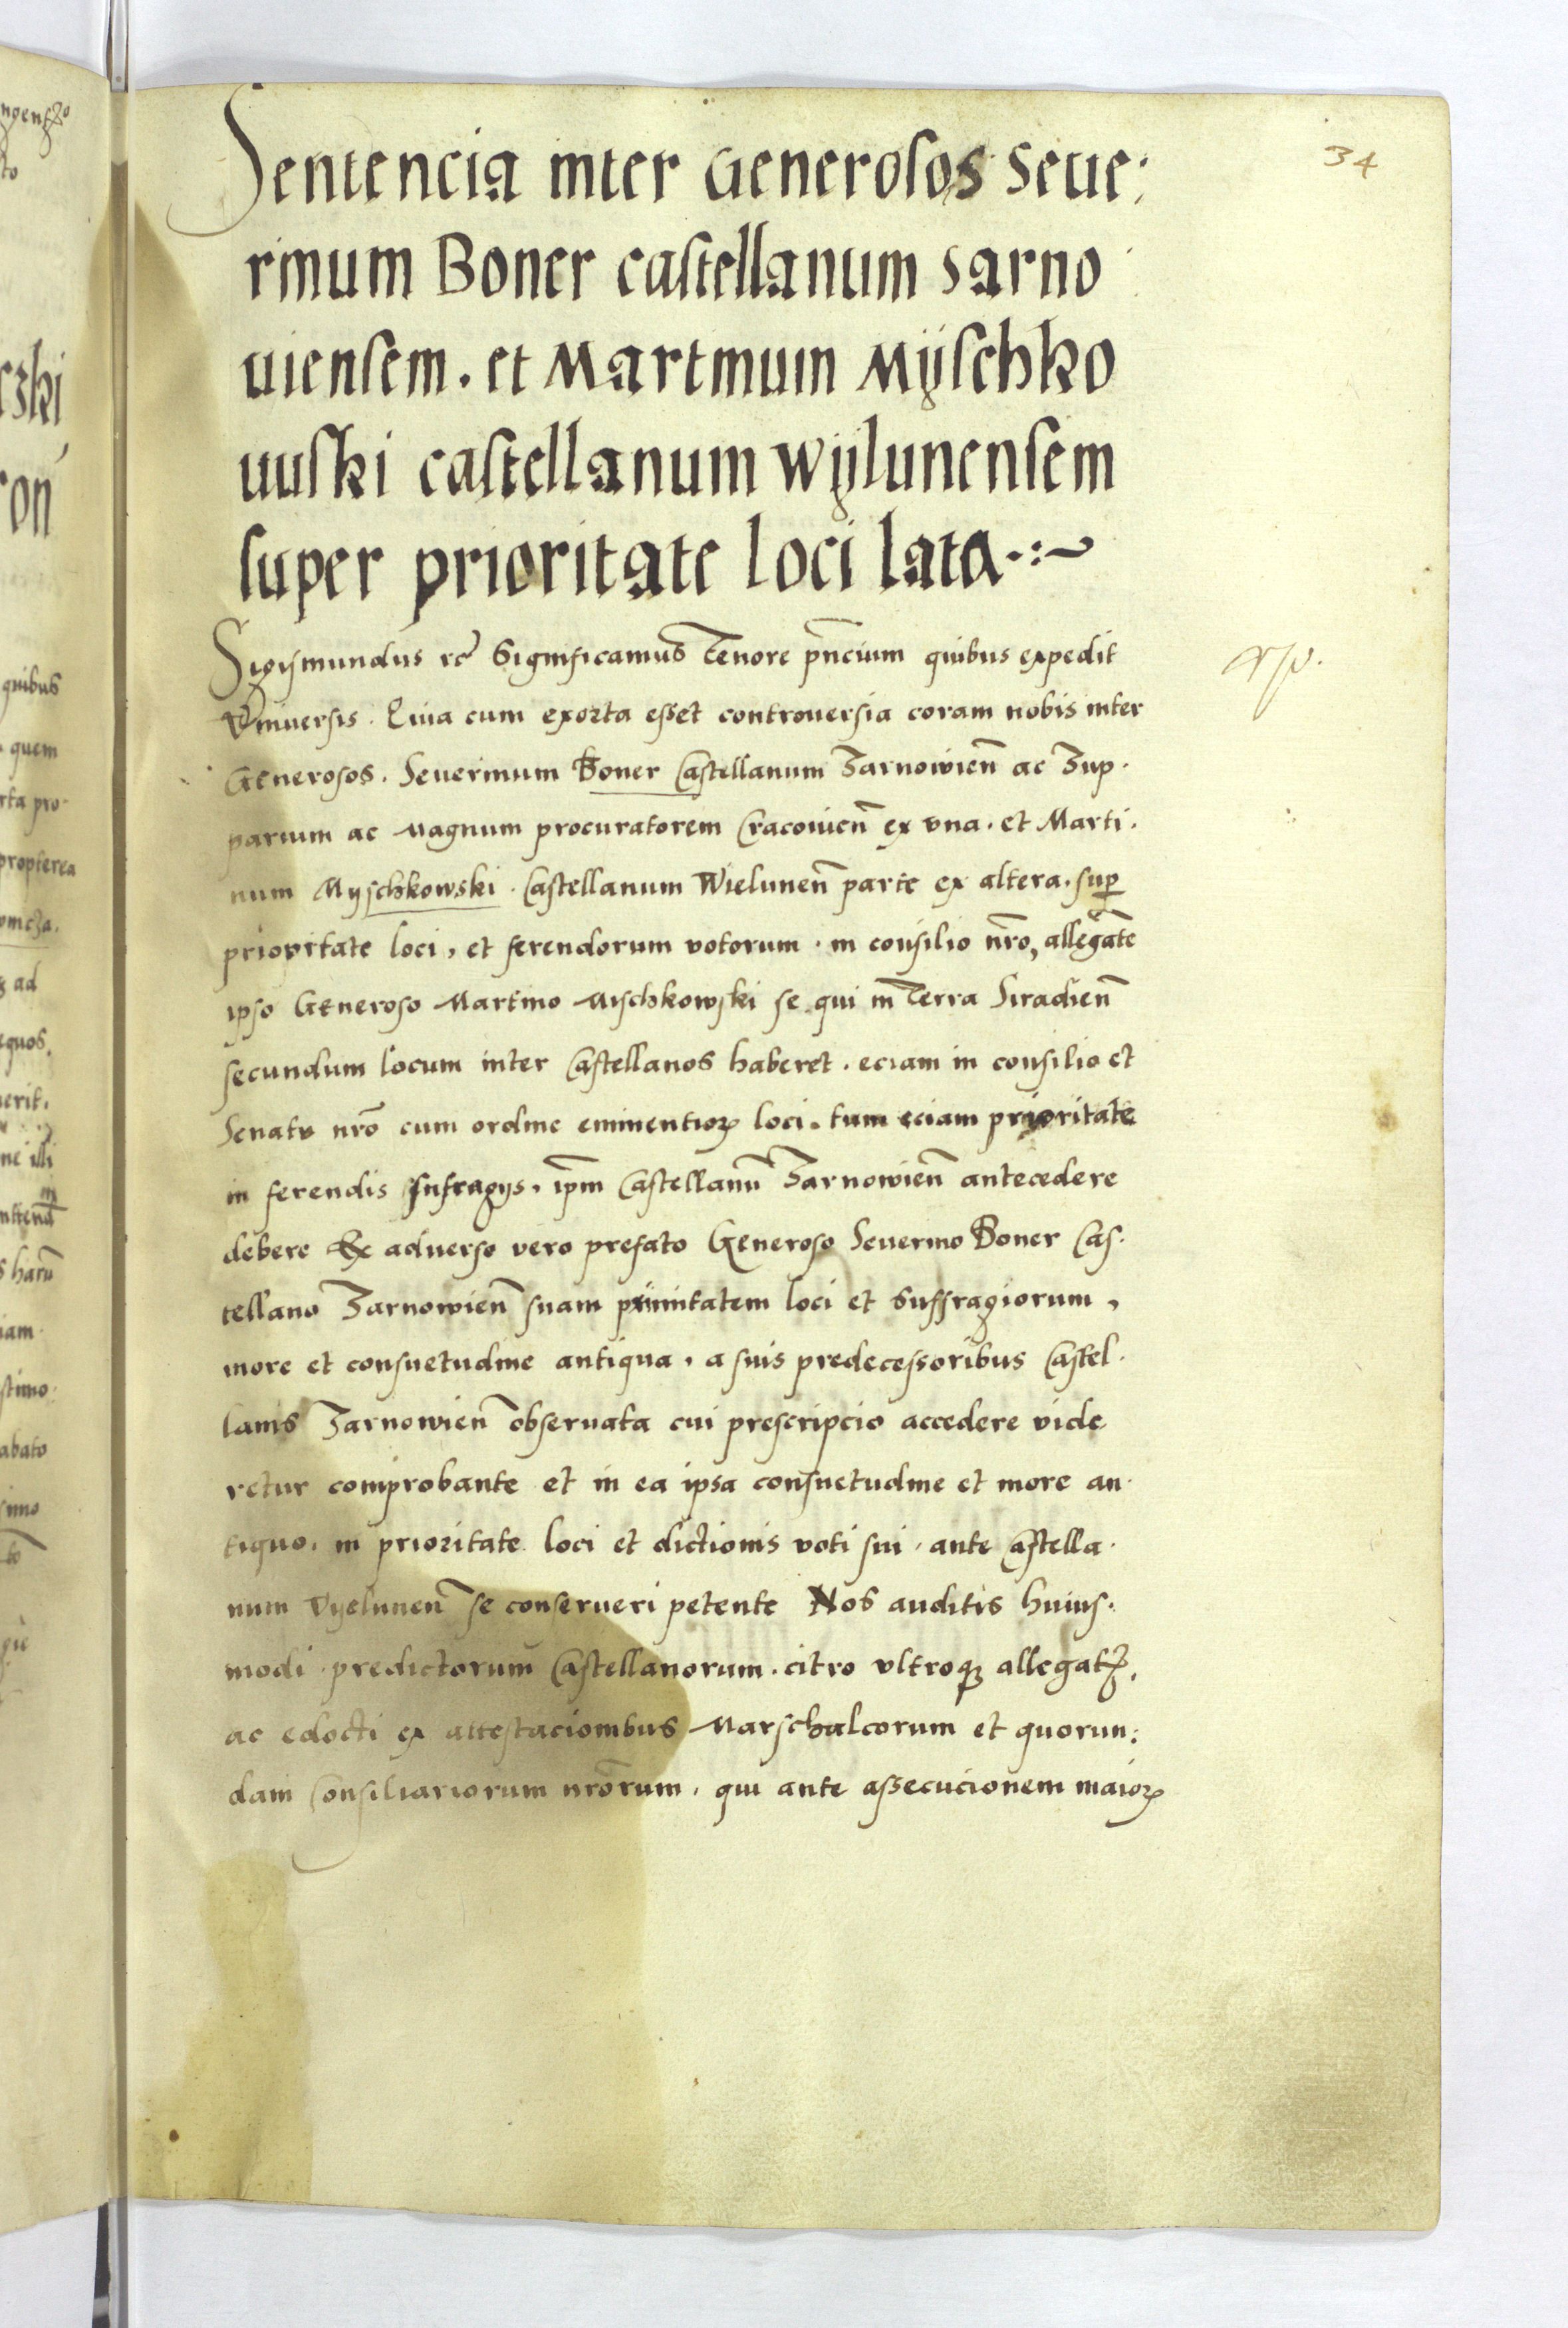 34
Sentencia inter Generosos Seue:
rinum Boner castellanum sarno
uiensem. et Martinum Mÿschko
uuski castellanum wÿlunensem
super prioritate loci lata
Sigismundus rc̃ Significamus Tenore pn̄cium quibus expedit
Vniuersis. Quia cum exorta esset controuersia coram nobis inter
Generosos. Seuerinum Boner Castellanum Zarnowien̄ ac Zup.
parium ac Magnum procuratorem Cracouien̄ ex vna. et Marti.
num Myschkowski. Castellanum Wielunen̄ parte ex altera. sup̱
prioritate loci, et ferendorum votorum. in consilio nr̄o, allegāte
ipso Generoso Martino Mischkowski se qui in Terra Siradien̄
secundum locum inter Castellanos haberet. eciam in consilio et
Senatu nr̄o cum ordine eminentioꝝ loci. tum eciam prioritate
in ferendis sufragÿs. ip̄m Castellanū Zarnowien̄ antecedere
debere Ex aduerso vero prefato Generoso Seuerino Boner Cas.
tellano Zarnowien̄ suam primitatem loci et Suffragiorum,
more et consuetudine antiqua, a suis predecessoribus Castel.
lanis Zarnowien̄ obseruata cui prescripcio accedere vide
retur comprobante et in ea ipsa consuetudine et more an.
tiquo. in prioritate loci et dictionis voti sui. ante Castella.
num Vyelunen̄ se conserueri petente Nos auditis huius.
modi. predictorum Castellanorum. citro vltroqꝫ allegatꝭ,
ac edocti ex attestacionibus Marschalcorum et quorun:
dam Consiliariorum nr̄orum, qui ante assecucionem maioꝝ